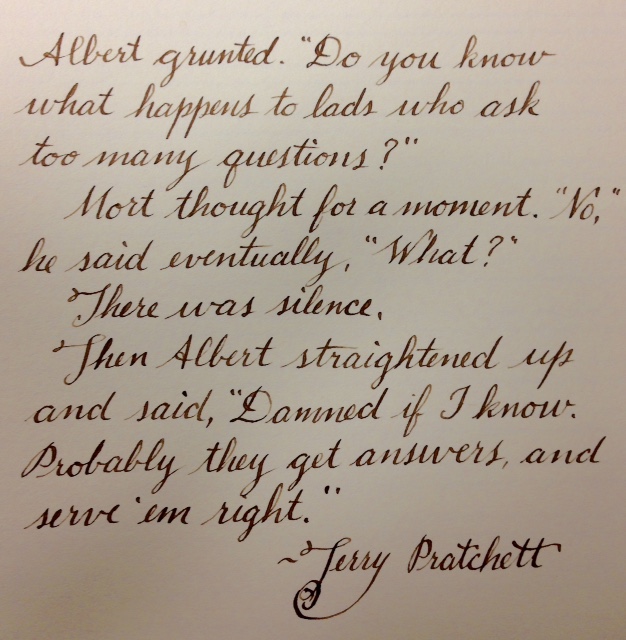 Albert grunted. "Do you know
what happens to lads who ask
too many questions?"
Mort thought for a moment. "No,"
he said eventually, "What?"
There was silence.
Then Albert straightened up
and said, "Damned if I know.
Probably they get answers, and
serve 'em right."
~Terry Pratchett